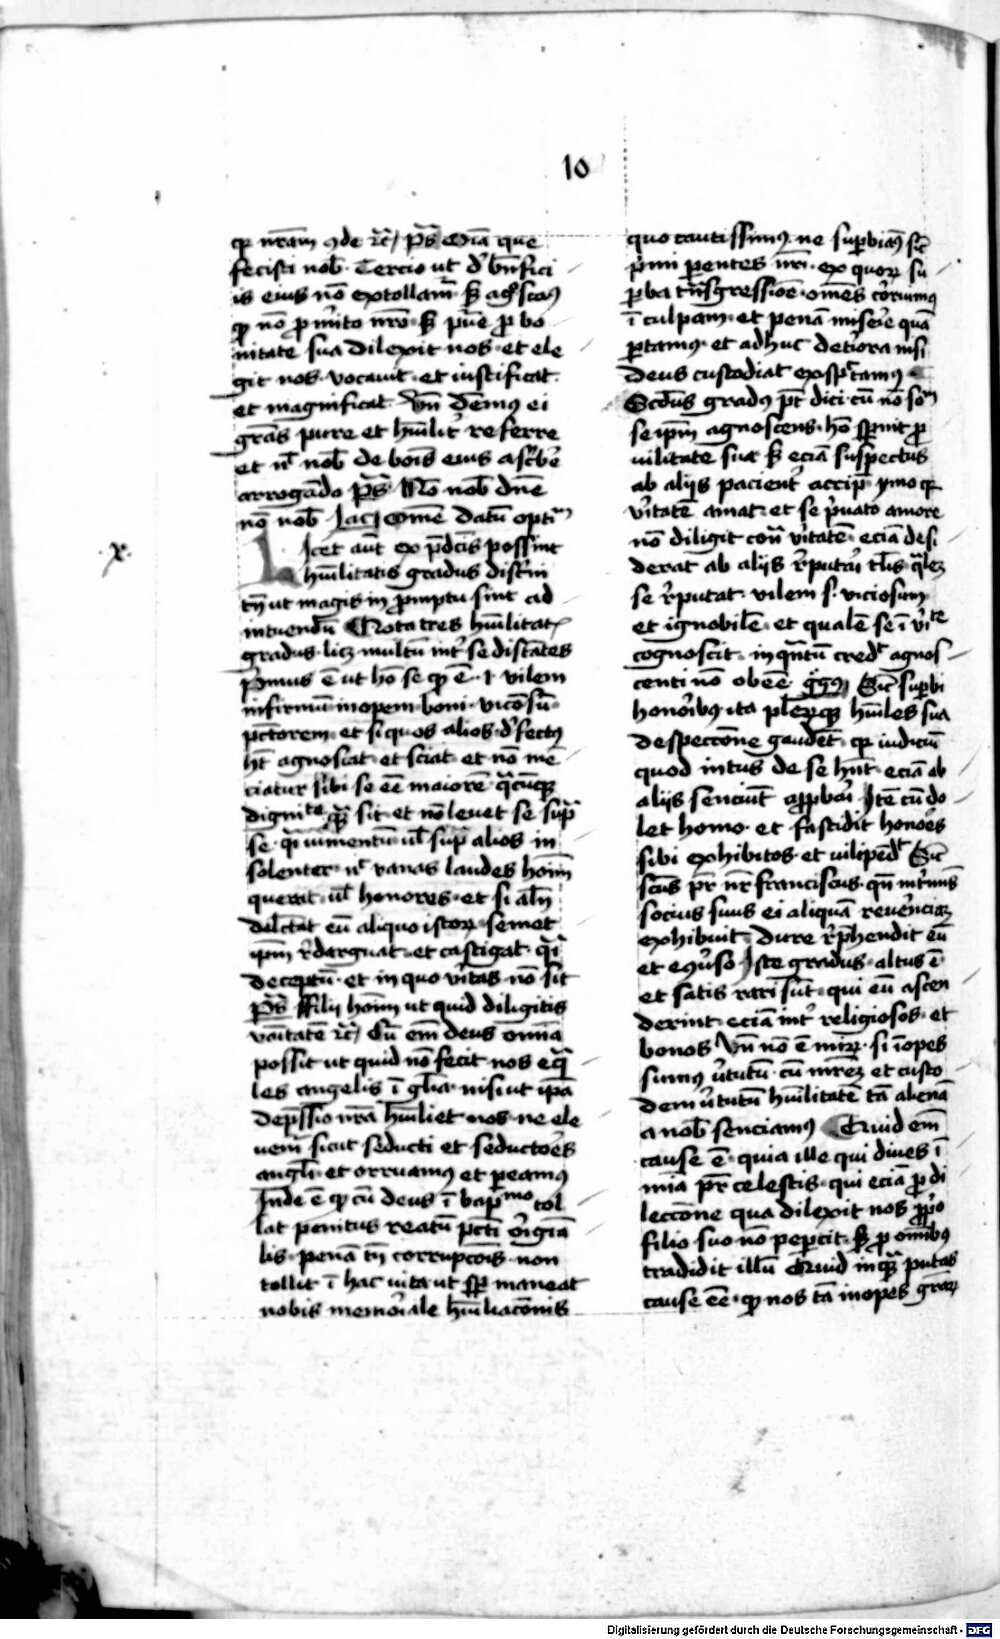 10
qr nr̄am gde ⁊c̄ / p̄s Om̄ia que
fecisti nob̄ . Tercio ut d' bn̄fici
is eius nō extollam̄ . sꝫ agnoscam9
ꝙ nō ꝓ merito nr̄o . sꝫ pure ꝓ bo
nitate sua dilexit nos . et ele
git nos . vocauit . et iustificat .
et magnificat . Vn̄ dem9 ei
gr̄as pure et hūilit' referre
et nl̄ nob̄ de bonis eius ascribe
arrogādo p̄s Non nob̄ dn̄e
nō nob̄ Iac9 Omē datū optim̄
x.
Licet aūt ex p̄dc̄is possint
hūilitatis gradus distin
tn̄ ut magis in promptu sint ad
intuendū Nota tres hūilitat
gradus . licꝫ multū int' se distātes
Primus ē ut hō se ꝙ ē . vilem
infirmū inopem boni . vicosū
pctorem . et si quos alios d'fect9
hꝫ agnoscat . et sciat . et nō me
ciatur sibi se eē maiorē q̄cūqꝫ
dignite sit . et nō leuet se sup̄
se q̄i iumentū ul̄ sup̄ alios in
solenter . nec vanas laudes hoīm
querat . ul̄ honores . et si aliq̄n
delectat eū aliquo istoꝝ . semet
ipm̄ r'darguat . et castigat . q̄i
deceptū . et in quo v'itas nō sit
p̄s Filii hoīm ut quid diligitis
vanitatē ⁊c̄ / Cū em̄ deus omīa
possit ut quid nō fecit nos eq̄
les angelis ī gl̄ia . nisi ut ipā
depressio nr̄a hūiliet nos . ne ele
uem̄ sicut seducti et seductores
angl̄i . et orruamus et peamus
Inde ē ꝙ cū deus ī bapmo tol
lat penitus reatū pcti origīa
lis . penā tn̄ corrupcōis . non
tollit ī hac uita ut sꝑ maneat
nobis memoriale hūiliacōnis
quo cautissim9 ne superbiam9 sic̄
primi ꝑentes nr̄i . ex quoꝝ su
ꝑba trāsgressiōe . omēs coruim9
ī culpam . et penā misere quā
portam9 . et adhuc det'iora nisi
deus custodiat exspectamus
Scd̄us gradus pt̄ dici . cū nō sol̄
se ipm̄ agnoscens . hō spernit ꝓ
uilitate sua sꝫ eciā suspectus
ab aliis pacient' accipit ymo qr
v'itatē amat . et se p'uato amore
nō diligit contra v'itatē . eciā desi
derat ab aliis r'putari tl̄is q̄lem
se r'putat . vilem s. viciosum
et ignobilē . et qualē se ī v'ite
cognoscit . in q̄ntū credit agnos
centi nō obeē . Sic superbi
honorib9 . ita pleꝝqꝫ hūiles sua
despeccōne gaudent . qr iudiciū
quod intus de se hn̄t . eciā ab
aliis senciūt approbari Itē cū do
let homo . et fastidit honores
sibi exhibitos . et uilipendit Sic
sc̄us pr̄ nr̄ franciscus . qn̄ int'im9
socius suus ei aliquā reuerēciam
exhibuit . dure r'prehendit eū
et eu'so Iste gradus . altus ē
et satis rari sūt . qui eū ascen
derint . eciā int' religiosos . et
bonos Vn̄ nō ē miꝝ . si īopes
sum9 v'tutū . cū mr̄em et custo
dem v'tutū hūilitatē tā alienā
a nob̄ senciamus Quid em̄
cause ē . quia ille qui diues ī
mīa pr̄ celestis . qui eciā ꝓ di
leccōne qua dilexit nos ꝓprio
filio suo nō peꝑcit . sꝫ ꝓ omībus
tradidit illū Quid inq̄m putas
cause eē . ꝙ nos tā inopes gr̄aꝝ
Digitalisierung gefördert durch die Deutsche Forschungsgemeinschaft - DFG